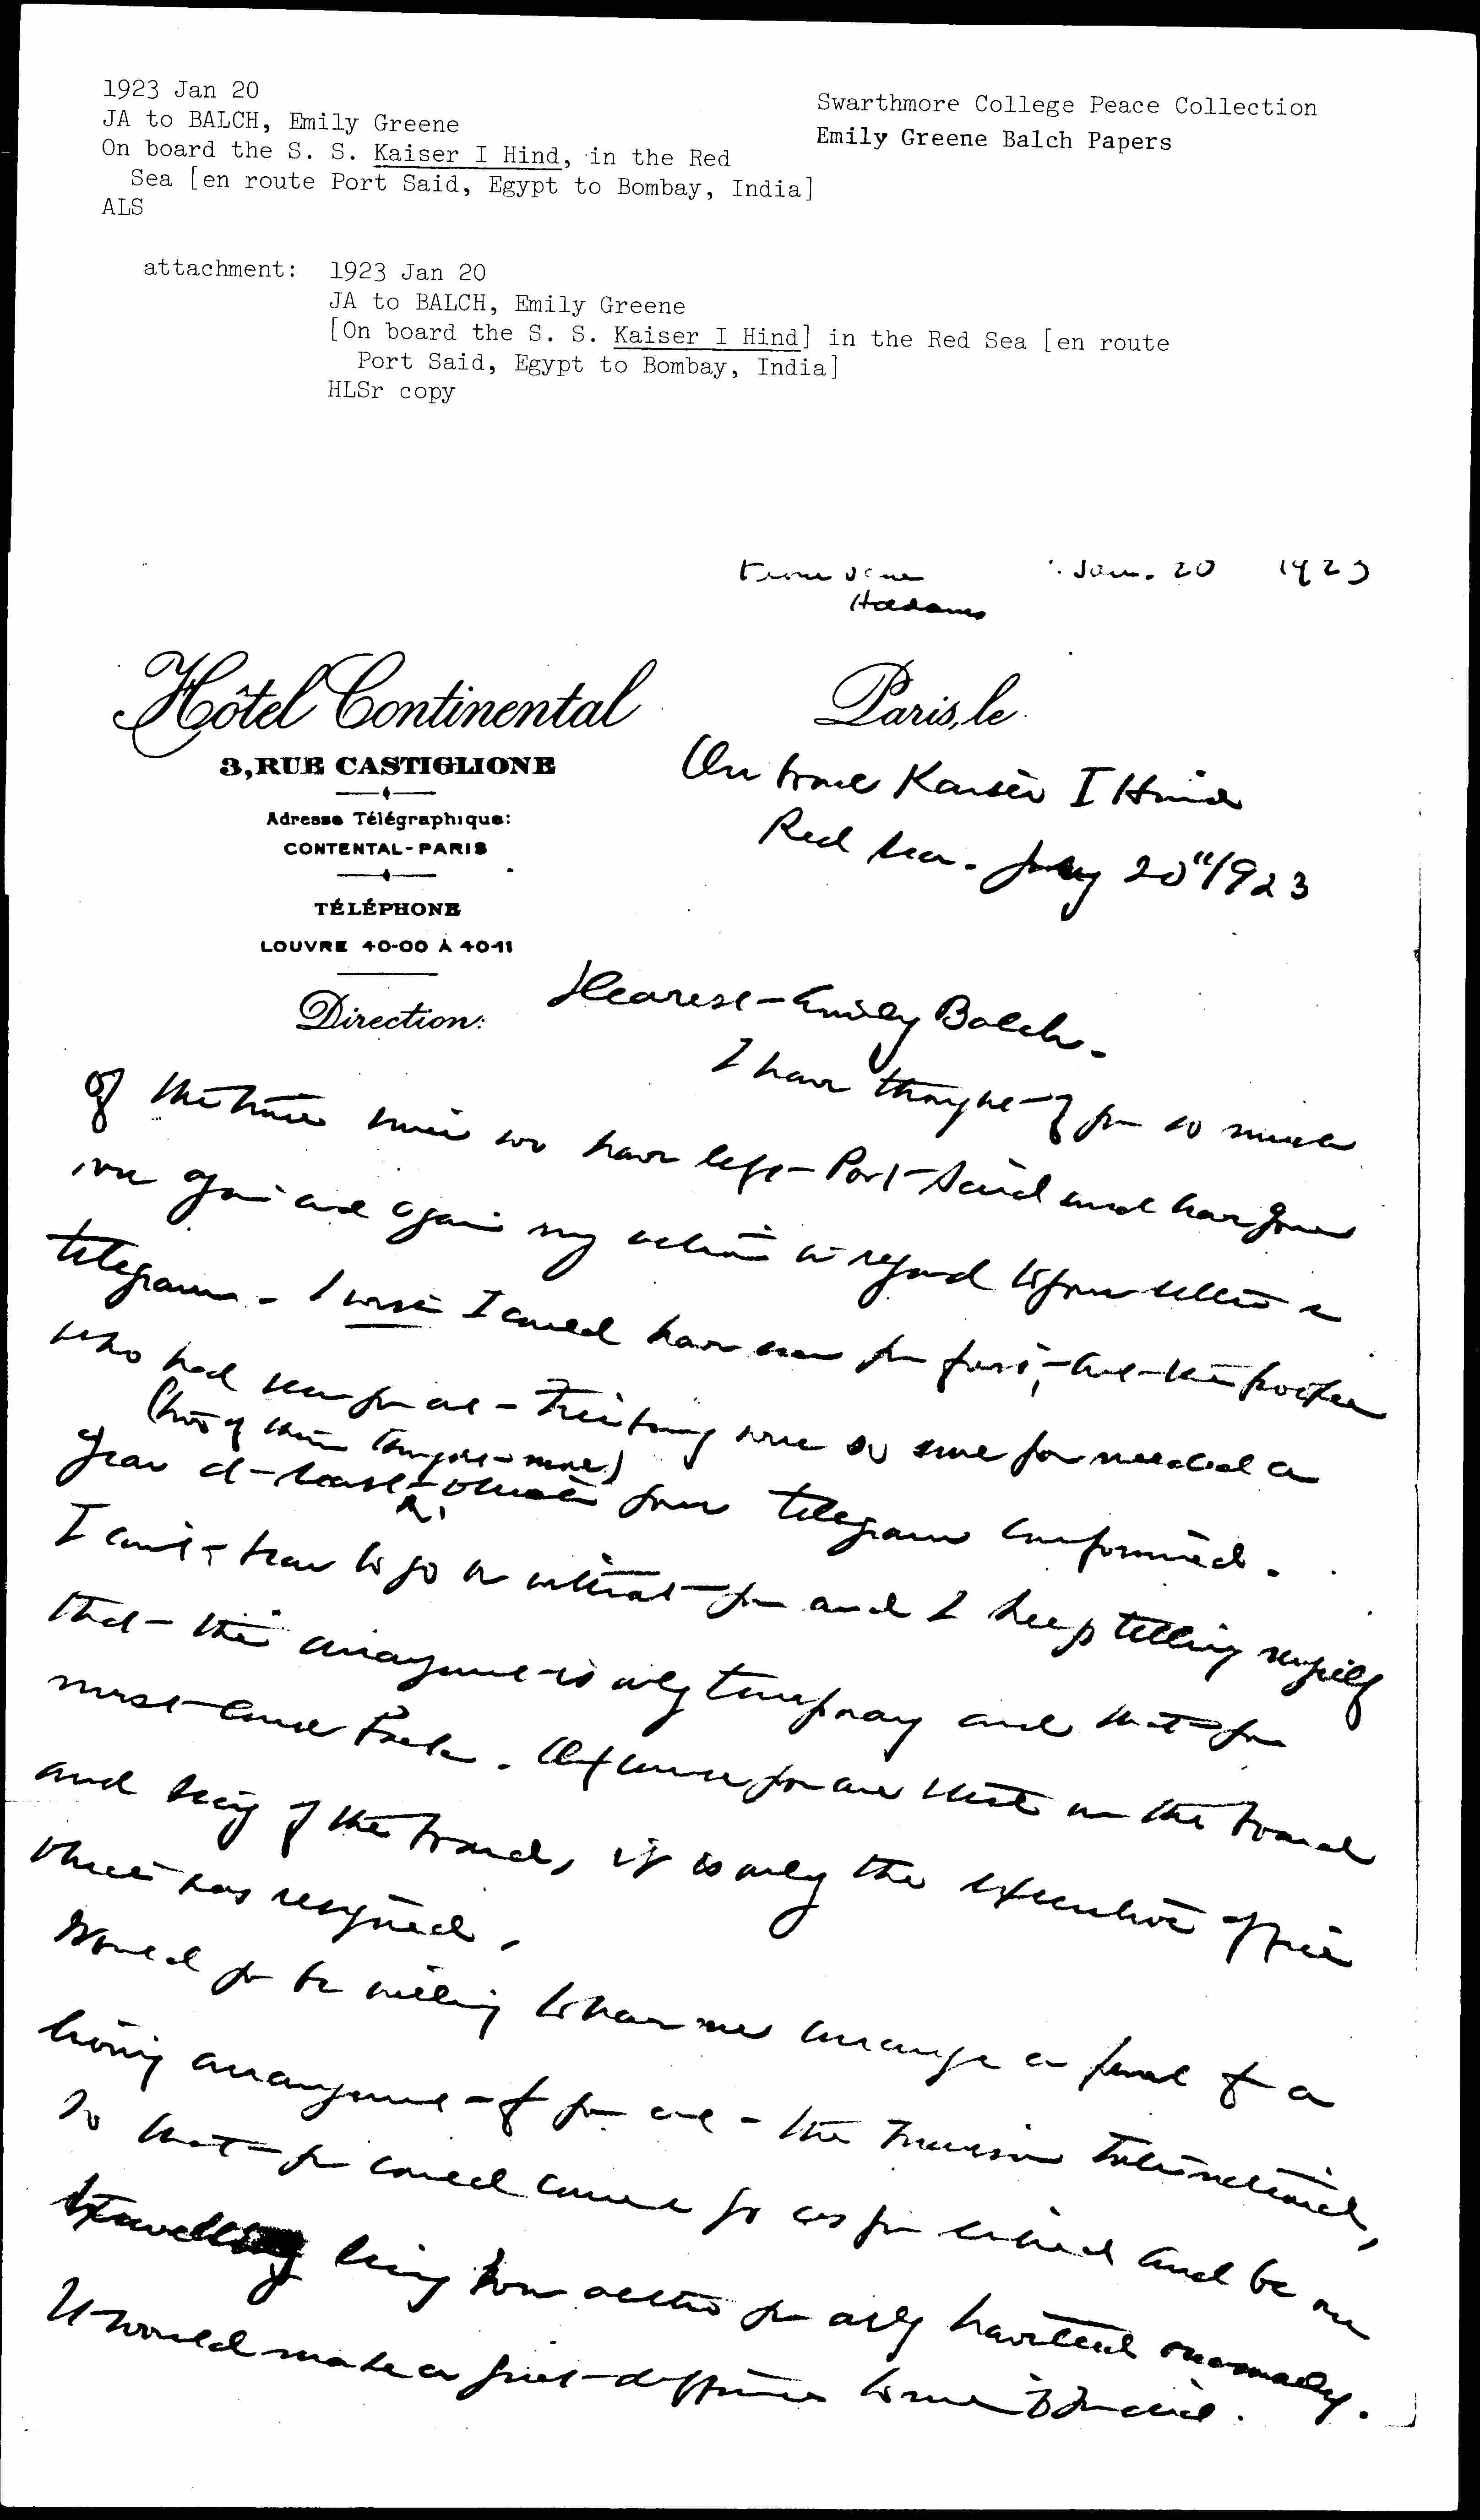 1923 Jan 20
JA to BALCH, Emily Greene
On board the S. S. Kaiser I Hind, in the Red
Sea [en route Port Said, Egypt to Bombay, India]
ALS
Swarthmore College Peace Collection
Emily Greene Balch Papers
attachment: 1923 Jan 20
JA to BALCH, Emily Greene
[On board the S. S. Kaiser I Hind] in the Red Sea [en route
Port Said, Egypt to Bombay, India]
HLSr copy
From Jane Jan. 20 1923
Addams
Hôtel Continental
3, RUE CASTIGLIONE
Adresse Télégraphique:
CONTENTAL-PARIS
TÉLÉPHONE
LOUVRE 40-00 À 40-11
Direction:
Paris, le
On board Kaiser I Hind
Red Sea. 20" 1923
Dearest Emily Balch-
I have thought of you so much
of the time since we have left Port Said and have gone
over again and again my action in regard to your letter &
telegram. I wish I could have seen you first, but the people
who had seen you at Freiburg were so sure you needed a
(two of them thought more)
year at least your telegram confirmed.
I can't bear to go on without you and I keep telling myself
that this arrangement is only temporary and that you
must come back. Of course you are still on the board
and sec'y of the board, it is only the executive office
which was resigned.
Would you be willing to have me arrange a fund of a
living arrangement for you at the Maison Internationale,
so that you could come & go as you wished and be on
travelling being done after you only occasionally.
It would make a great difference to me if you did.